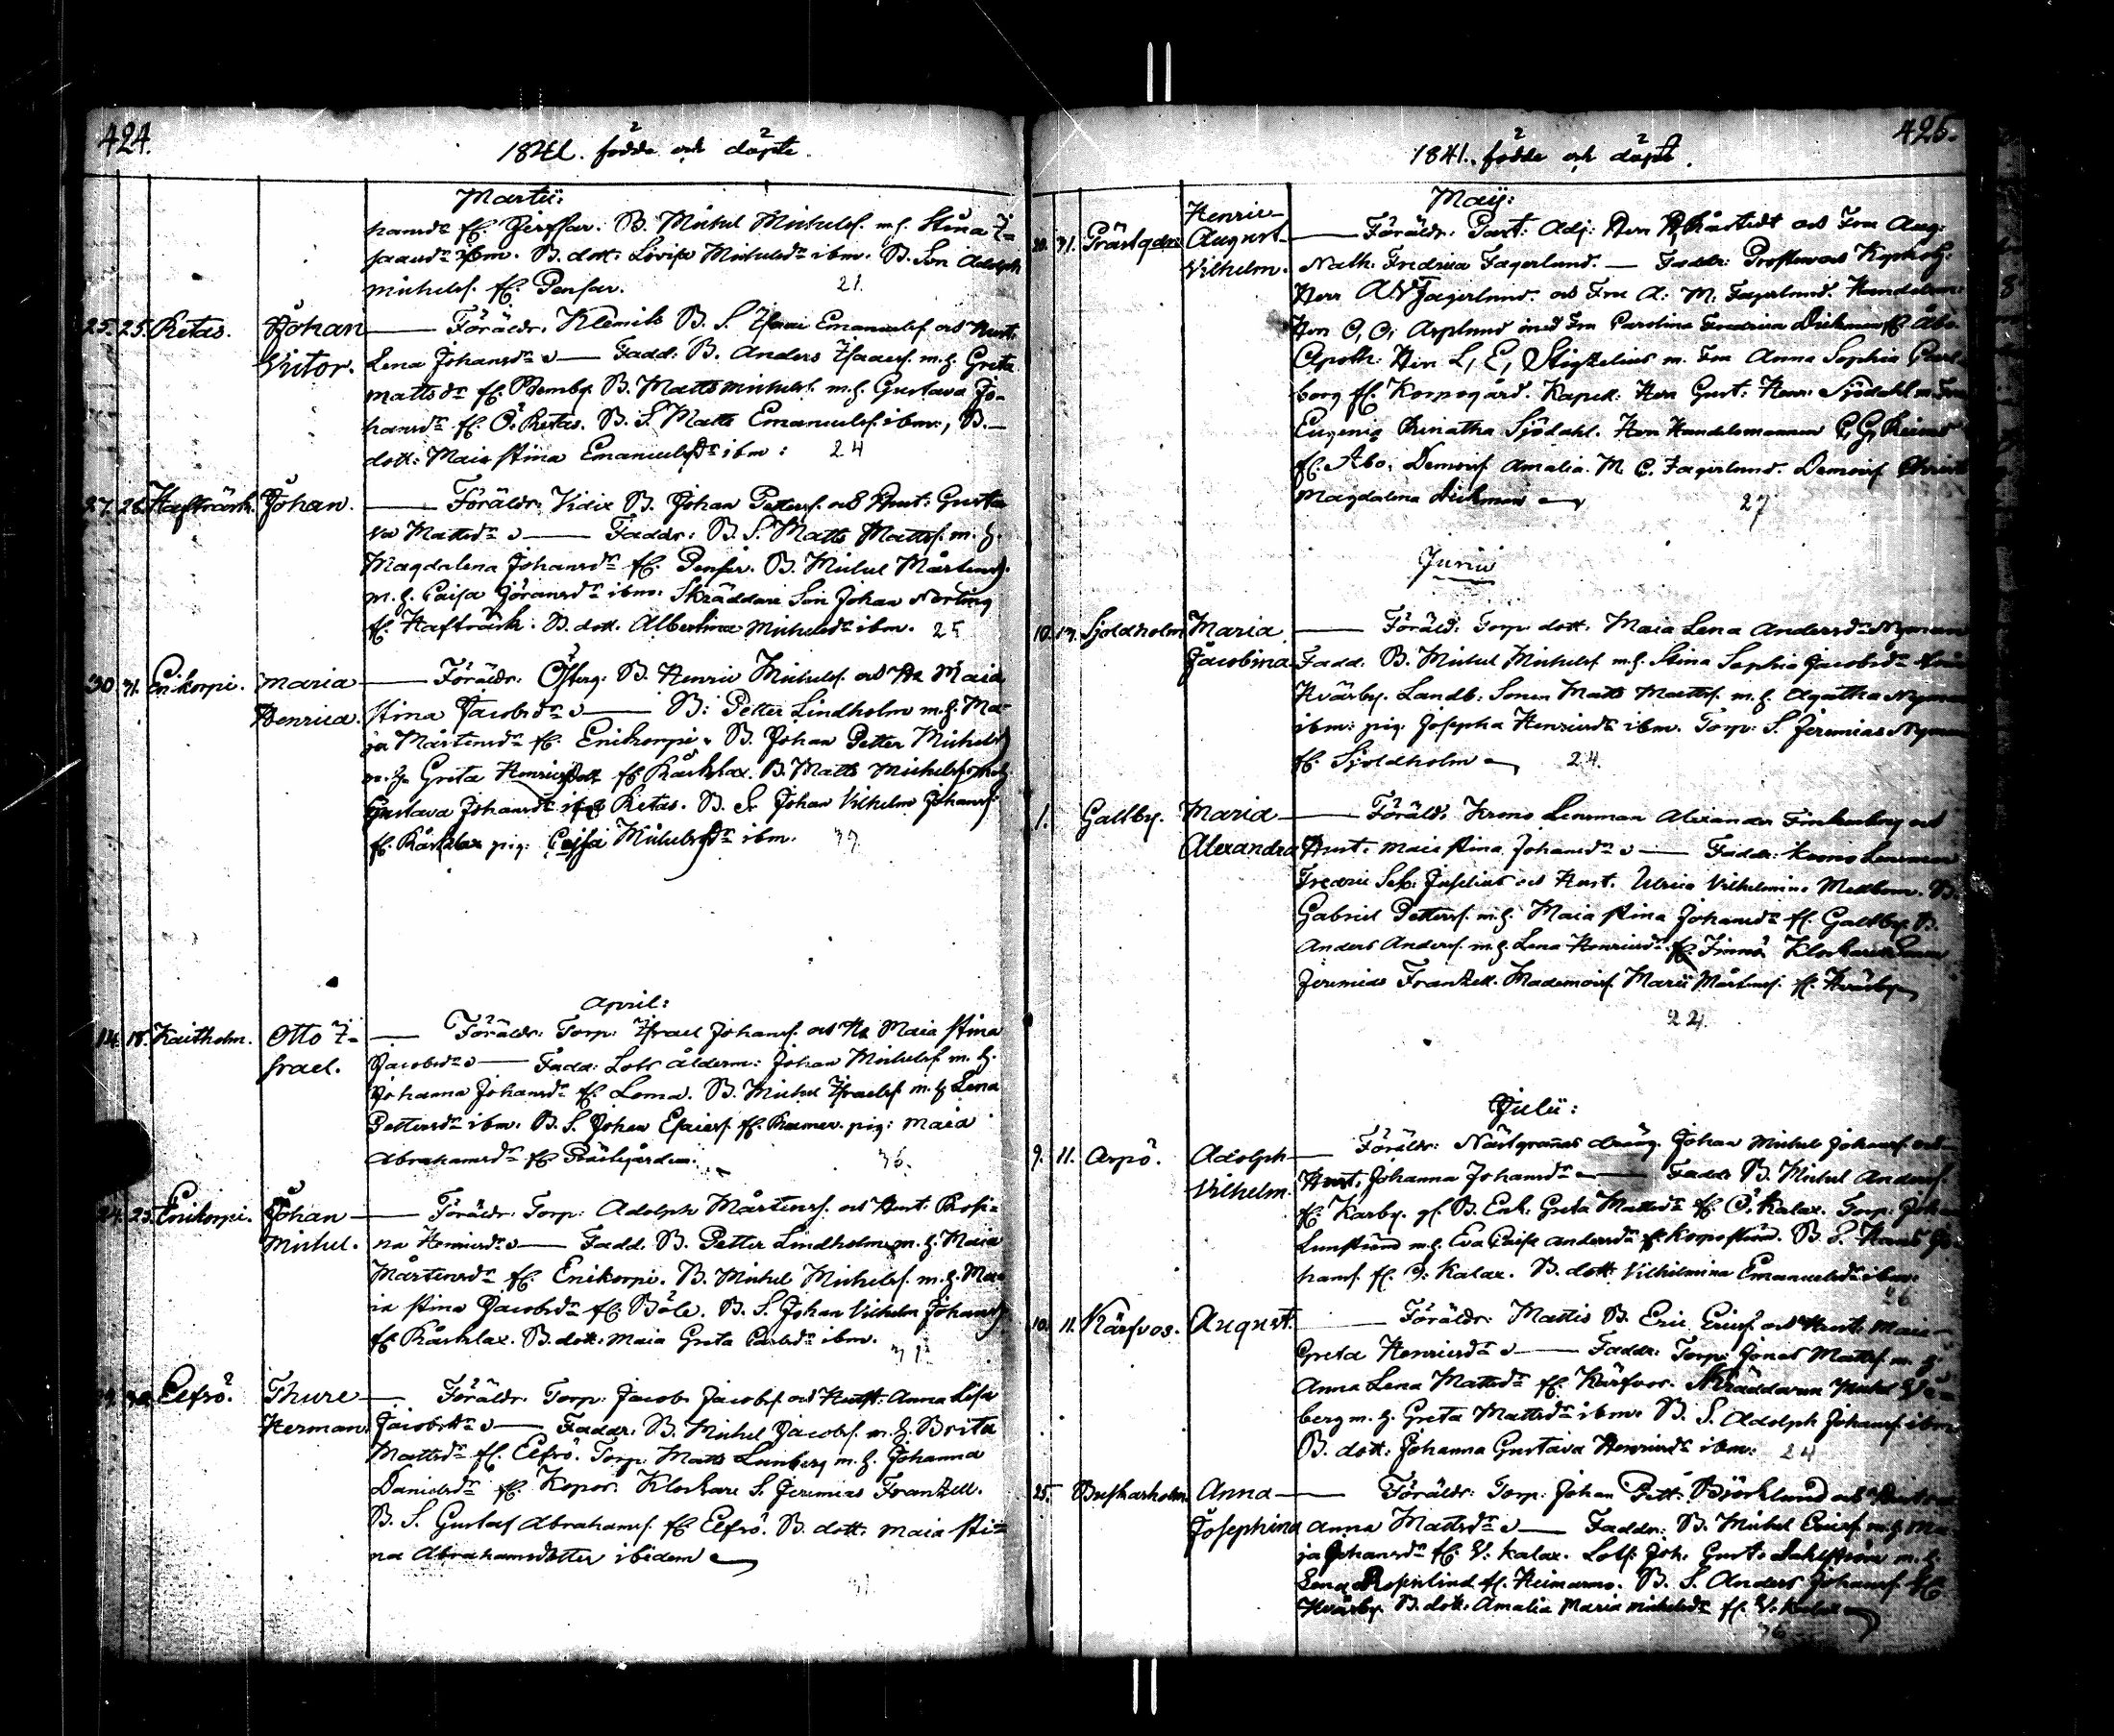 424.
1841. födde och döpte.
Martii:
hansdr fr. Pensar. B. Michel Michelss. m. h. Stina I-
saacsdr ibm. B. dott: Lovisa Michelsdr ibm. B. Son Adolph
Michelss. fr. Pensar. 21.
25. 25. Retas. Johan — Föräldr. Klemits B. S. Isaac Emanuelss. och Hust.
Victor. Lena Johansdr — Fadd: B. Anders Isaacss. m. h. Greta
Mattsdr fr. B. Matts Michelss. m. h. Gustava Jo-
hansdr fr. Ö. Retas. B. S. Matts Emanuelss. ibm., B.
dott: Maia Stina Emanuelsdr ibm: 24
27. 28. Hafträsk. Johan. — Föräldr. Vidix B. Johan Petterss. och Hust: Gusta
va Mattsdr — Faddr: B. S. Matts Mattss. m. h.
Magdalena Johansdr fr. Pensar. B. Michel Mårtenss.
m. h. Caisa Göransdr ibm. Skräddare Son Johan
fr. Hafträsk. B. dott. Albertina Michelsdr ibm. 25
30. 31. Enikorpi. Maria — Föräldr: Österg: B. Henric Michelss. och H. Maia
Henrica. Stina Jacobsdr — B: Petter Lindholm m. h. Ma-
ja Mårtensdr fr. Enikorpi. B. Johan Petter Michelss.
m. h. Greta Henricsdott fr. Kårklax. B. Matts Michelss. m. h.
Gustava Johansdr fr. Retas. B. S. Johan Vilhelm Johanss.
fr. Kårklax pig: Caisa Michelsdr ibm. 37.
April:
14. 18. Kaitholm. Otto I- — Föräldr: Torp: Israel Johanss. och H. Maia Stina
srael. Jacobsdr — Fadd: Lots ålderm: Johan Michelss. m. h.
Johanna Johansdr fr. Loma. B. Michel Israelss. m. h. Lena
Pettersdr ibm. B. S. Johan Esaiess. fr. Rumar. pig: Maia
Abrahamsdr fr Prästgården. 36.
24. 25. Enikorpi. Johan — Föräldr. Torp: Adolph Mårtenss. och Hust. Rosi-
Michel. na Henricsdr — Fadd. B. Petter Lindholm m. h. Maia
Mårtensdr fr. Enikorpi. B. Michel Michelss. m. h. Ma-
ia Stina Jacobsdr fr. Böle. B. S. Johan Vilhelm Johanss.
fr Kårklax. B. dott: Maia Greta Carlsdr ibm.
Elfsö. Thure — Föräldr. Torp: Jacob Jacobss. och Hust: Anna Lisa
Herman. Jacobsdr — Faddr. B. Michel Jacobss. m. h. Brita
Mattsdr fr. Elfsö. Torp. Matts Lunberg m. h. Johanna
Danielsdr fr. Korpos. Klockare S. Jeremias Frantzell.
B. S. Gustaf Abrahamss. fr Elfsö. B. dott: Maia Sti-
na Abrahamsdotter ibidem
425.
1841. födde och döpte.
Maji:
Henric
31. Prästgdn August — Föräldr: Past: Adj: Herr och Fru Aug:
Vilhelm. Nath. Fredrica Fagerlund. — Faddr: Prosten och Kyrkoh:
Herr A. W. Fagerlund. och Fru A: M. Fagerlund. Handelsm:
Herr C. O. Asplund med Fru Carolina Fredrica Dickman fr Åbo.
Apoth. Herr L. E. Stigzelius m. Fru Anna Sophia
borg fr. Korpogård. Kapell. Herr Gust: Henr: Sjödahl m. Fru
Eugenia Renatha Sjödahl. Herr Handelsmannen
fr. Åbo. Demois. Amalia. M. C. Fagerlund. Demois.
Magdalena Dickman 27
Junii
10. 17. Sjoldholm Maria — Föräld. Torp. dott. Maia Lena Andersdr Nyman
Jacobina. Fadd. B. Michel Michelss. m. h. Stina Sophia Jacobsdr
Hvärby. Landb. Sonen Matts Mattss. m. h. Agatha Nyman
ibm: pig. Josepha Henricsdr ibm. Torp. S. Jeremias Nyman
fr. Sjoldholm 24.
1. Galtby. Maria — Föräld. Krono Lensman Alexander Finkenberg och
Alexandra Hust. Maia Stina Johansdr — Faddr: Krono Lensman
Fredric Seb: Juselius och Hust. Ulrica Vilhelmina Mellbom. B.
Gabriel Petterss. m. h. Maia Stina Johansdr fr. Galtby. B.
Anders Anderss. m. h. Lena Henricsdr fr. Finnö. Klockare Son
Jeremias Frantzell. Mademois. Marie fr. Hvärby
22.
Julii:
9. 11. Arpö. Adolph — Föräldr: dräng. Johan Michel Johanss. och
Vilhelm. Hust. Johanna Johansdr — Fadd. B. Michel Anderss.
fr. Karby. B. Enk. Greta Mattsdr fr. Ö. Kalax. Torp. Johan
Lunström m. h. Eva Caisa Andersdr fr. Korpoström. B. S.
hanss. fr. Ö. Kalax. B. dott Vilhelmina Emanuelsdr ibm.
26
10. 11. Kärfvos. August. — Föräldr: Mattis B. Eric Ericss. och Hust: Maia
Greta Henricsdr — Faddr: Torp: Jonas Mattss. m. h.
Anna Lena Mattsdr fr. Kärfvos. Skräddaren Michel
berg m. h. Greta Mattsdr ibm. B. S. Adolph Johanss. ibm
B. dott: Johanna Gustava Henricsdr ibm: 24
25. Buskasholm Anna — Föräldr: Torp: Johan Pett: Björklund och Hustru
Josephina Anna Mattsdr — Faddr: B. Michel Ericss. m. h. Ma-
ja Johansdr fr. V. Kalax. Lots. Joh. Gust. Dahlström m. h.
Lena Rosenlind fr. Heimarno. B. S. Anders Johanss. fr
Hvärby. B. dott. Amalia Maria Michelsdr fr. V. Kalax
36